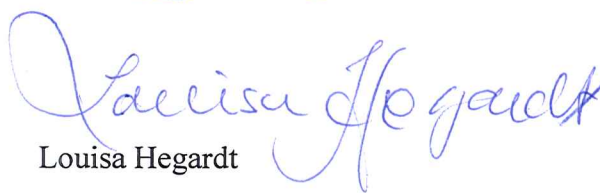 Louisa Hegardt
Louisa Hegardt